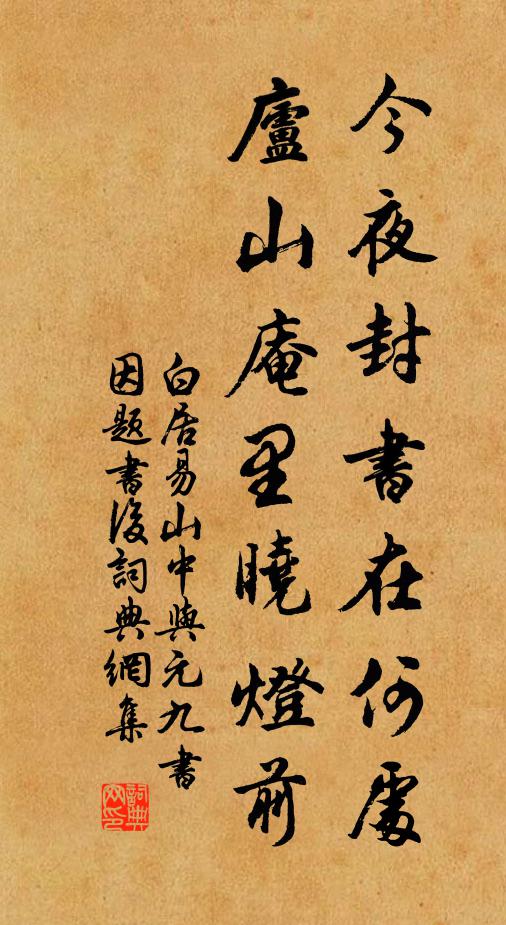 今夜封書在何處
廬山庵里曉燈前
白居易山中與元九書
因題書後詞典網集
詞典網印